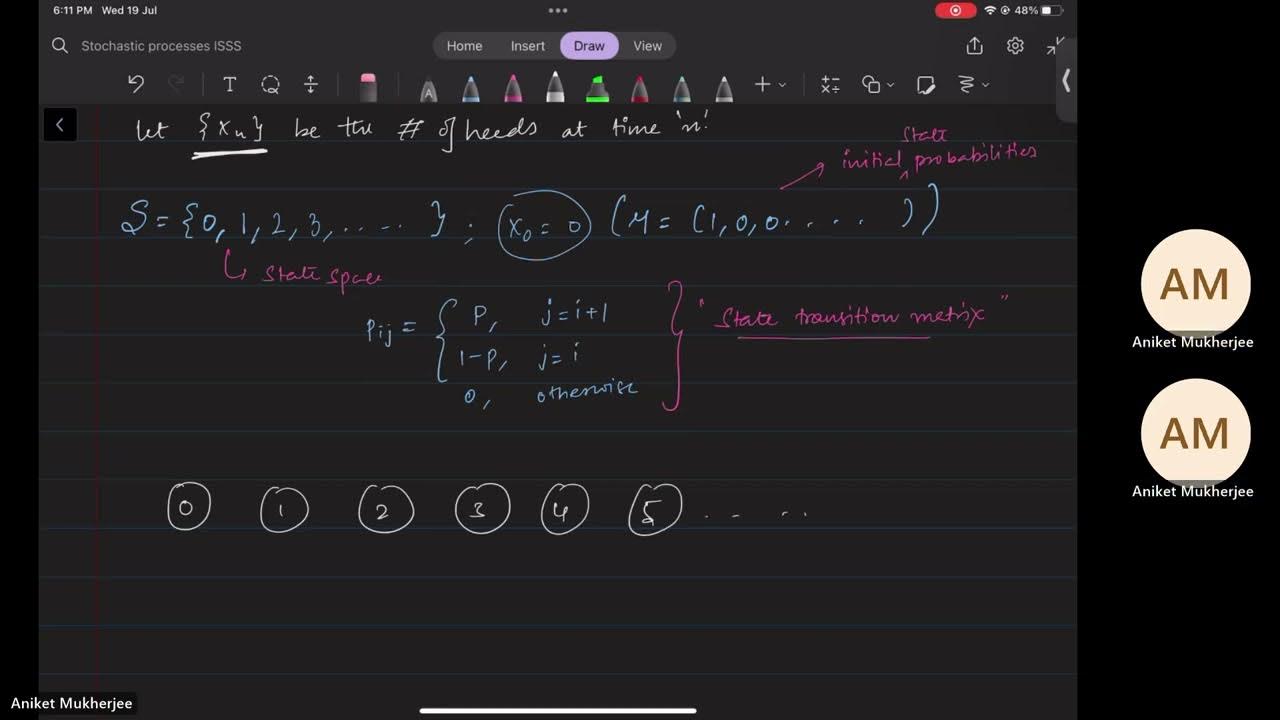 6:11 PM Wed 19 Jul
48%
Stochastic processes ISSS
Home Insert Draw View
T
A
let {Xn} be the # of heads at time 'n'.
State
initial probabilities
S = {0, 1, 2, 3, ..... } ; X0 = 0 (μ = (1, 0, 0 ..... ))
State space
Pij = { P, j = i+1
1-P, j = i
0, otherwise
} "State transition metrix"
0 1 2 3 4 5 .. ..
AM
Aniket Mukherjee
AM
Aniket Mukherjee
Aniket Mukherjee